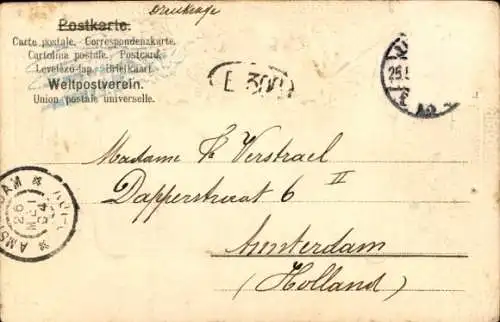 Postkarte.
Carte postale. - Correspondenzkarte.
Cartolina postale. - Postcard.
Levelező-lap. - Briefkaart.
Weltpostverein.
Union postale universelle.
E 300
25.
Madame F. Verstrael
Dapperstraat 6 II
Amsterdam
(Holland)
AMSTERDAM
26
MEI
04